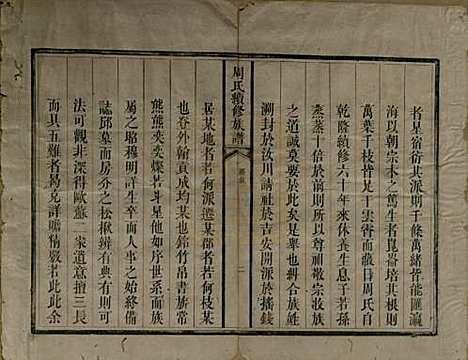 者星宿衍其派則千條萬緒皆能匯瀛
海以朝宗本之篤生者崑崙培其根則
萬葉千枝皆足干雲霄而蔽日周氏自
乾隆續修六十年來休養生息若子若孫
蒸蒸十倍於前則所以尊祖敬宗收族
之道誠莫要於此是舉也糾合族姓
溯封於汝川請社於吉安開派於播錢
周氏續修族譜
二
居某地者若何派遷某郡者若何枝某
也卷外翰貢成均某也銘竹帛書旂常
熊熊奕奕燦若斗星他如序世系而族
屬之昭穆明詳生卒而人事之始終備
誌邱墓而房分之松楸辨有典有則可
法可觀非深得歐蘇一家道意擅三長
而具五難者曷克詳贍精覈若此此余